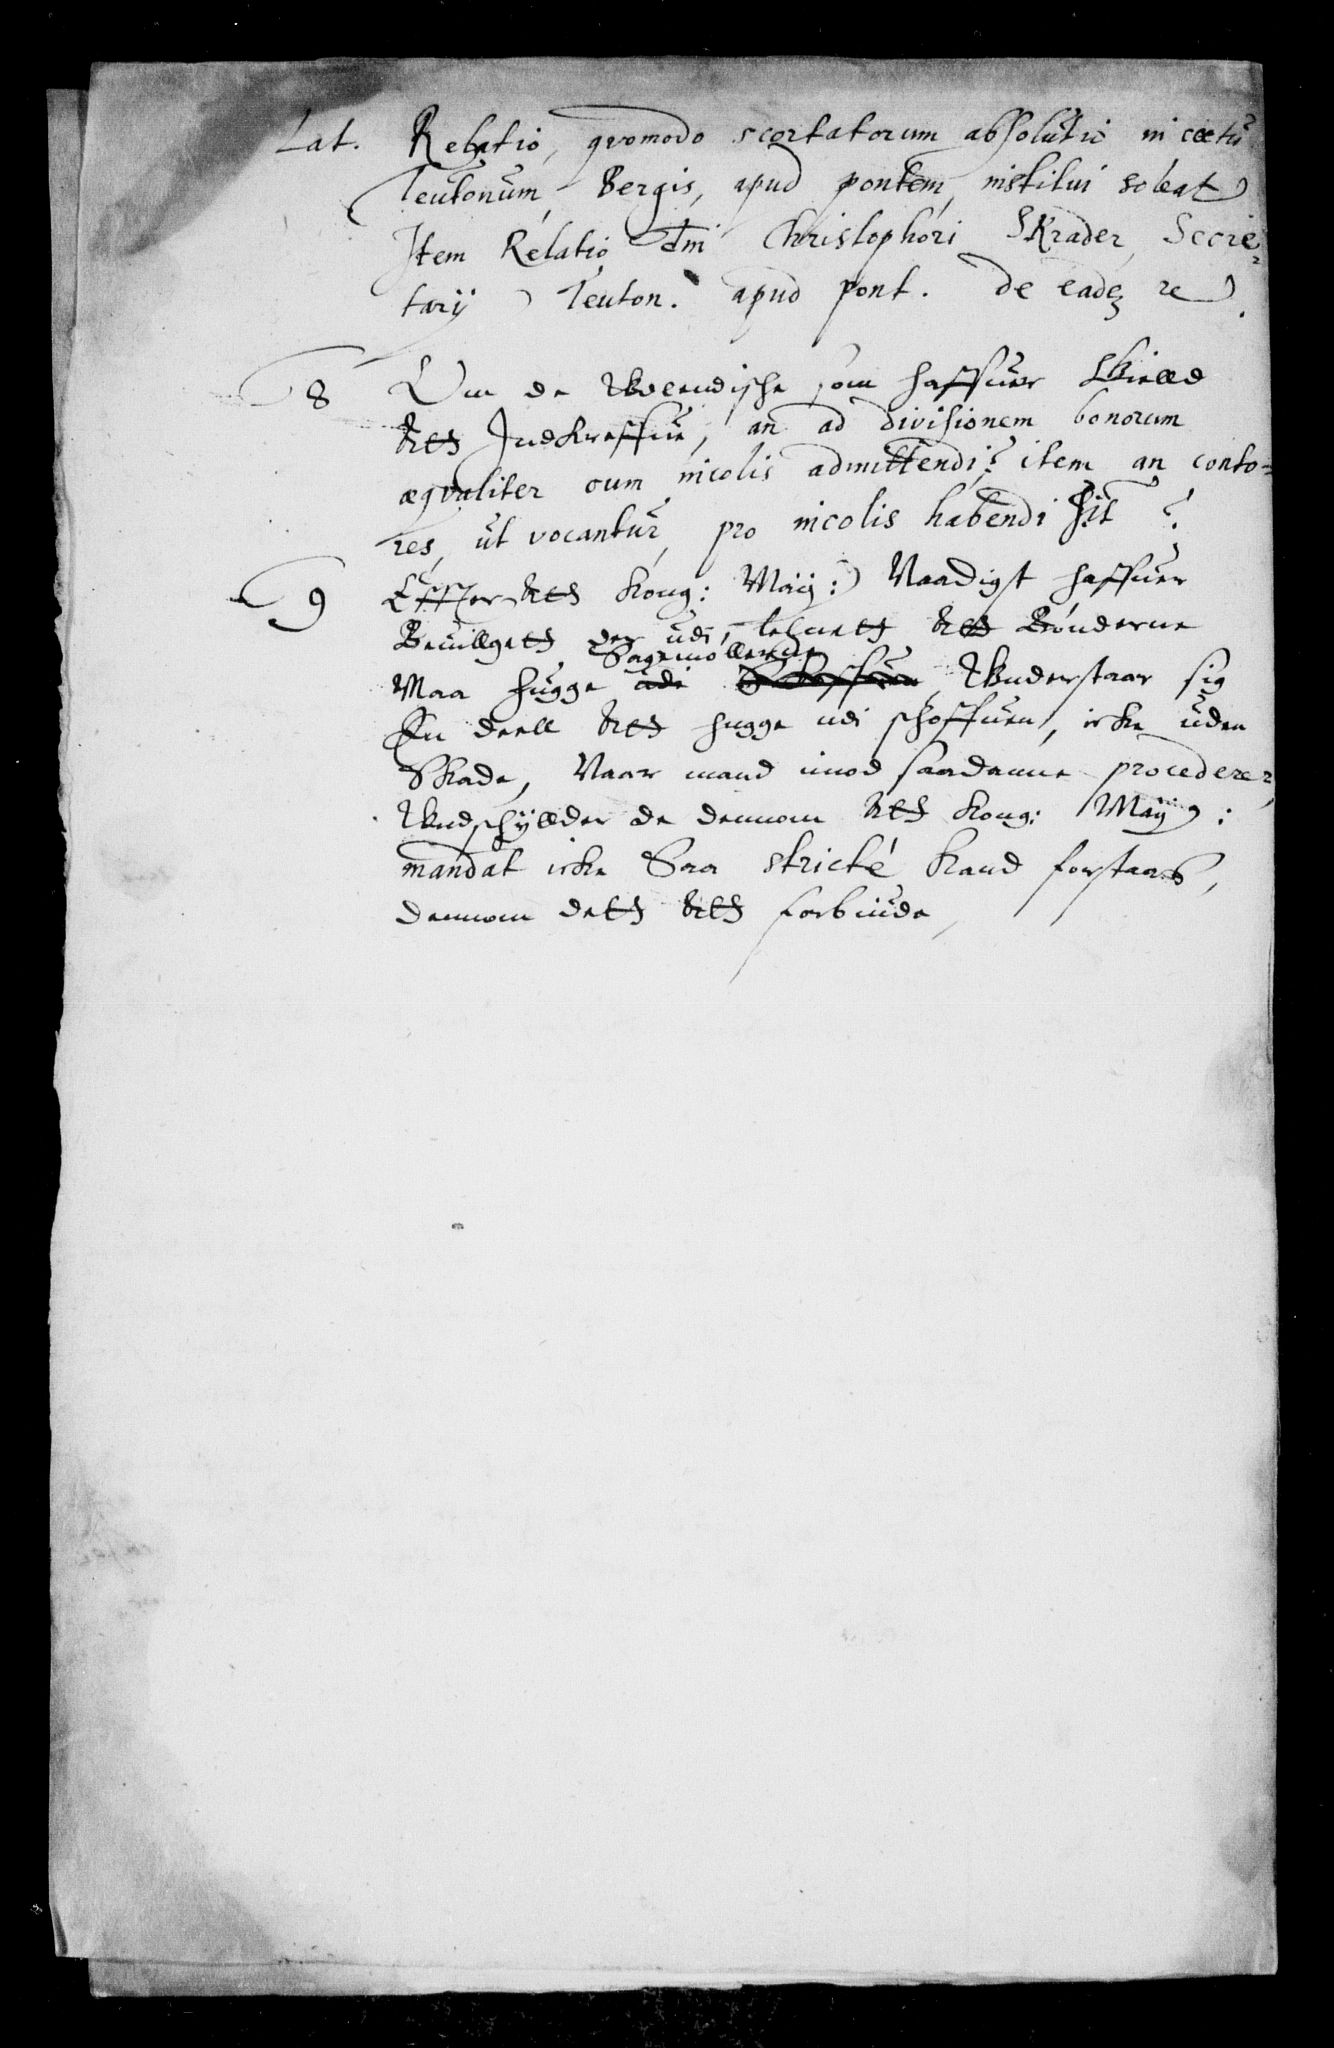 Lat. Relatio, qvomodo scortatorum absolutio in cœtu
Teutonum, Bergis, apud pontem, institui soleat
Item Relatio dni Christophori SKrader, Secre=
tarij Teuton. apud pont. de eadez re.
8 Om de Wdlendische som haffuer Skield
att Indkreffue, an ad divisionem bonorum
æqvaliter cum incolis admittendi? item an conto=
res, ut vocantur, pro incolis habendi sit?
9 Effter att Kong: Maij: Naadigst haffuer
Beuillgett der udi lehnett att Bønderne
Sagemøllerne
Maa hugge udi Wnderstaar sig
En deell att hugge udi schoffuen, icke uden
Skade, Naar mand imod saadanne procederer,
Wndschÿlder de dennom att Kong: Maij:
mandat icke Saa stricté kand forstaas,
dennom dett att forbiude,